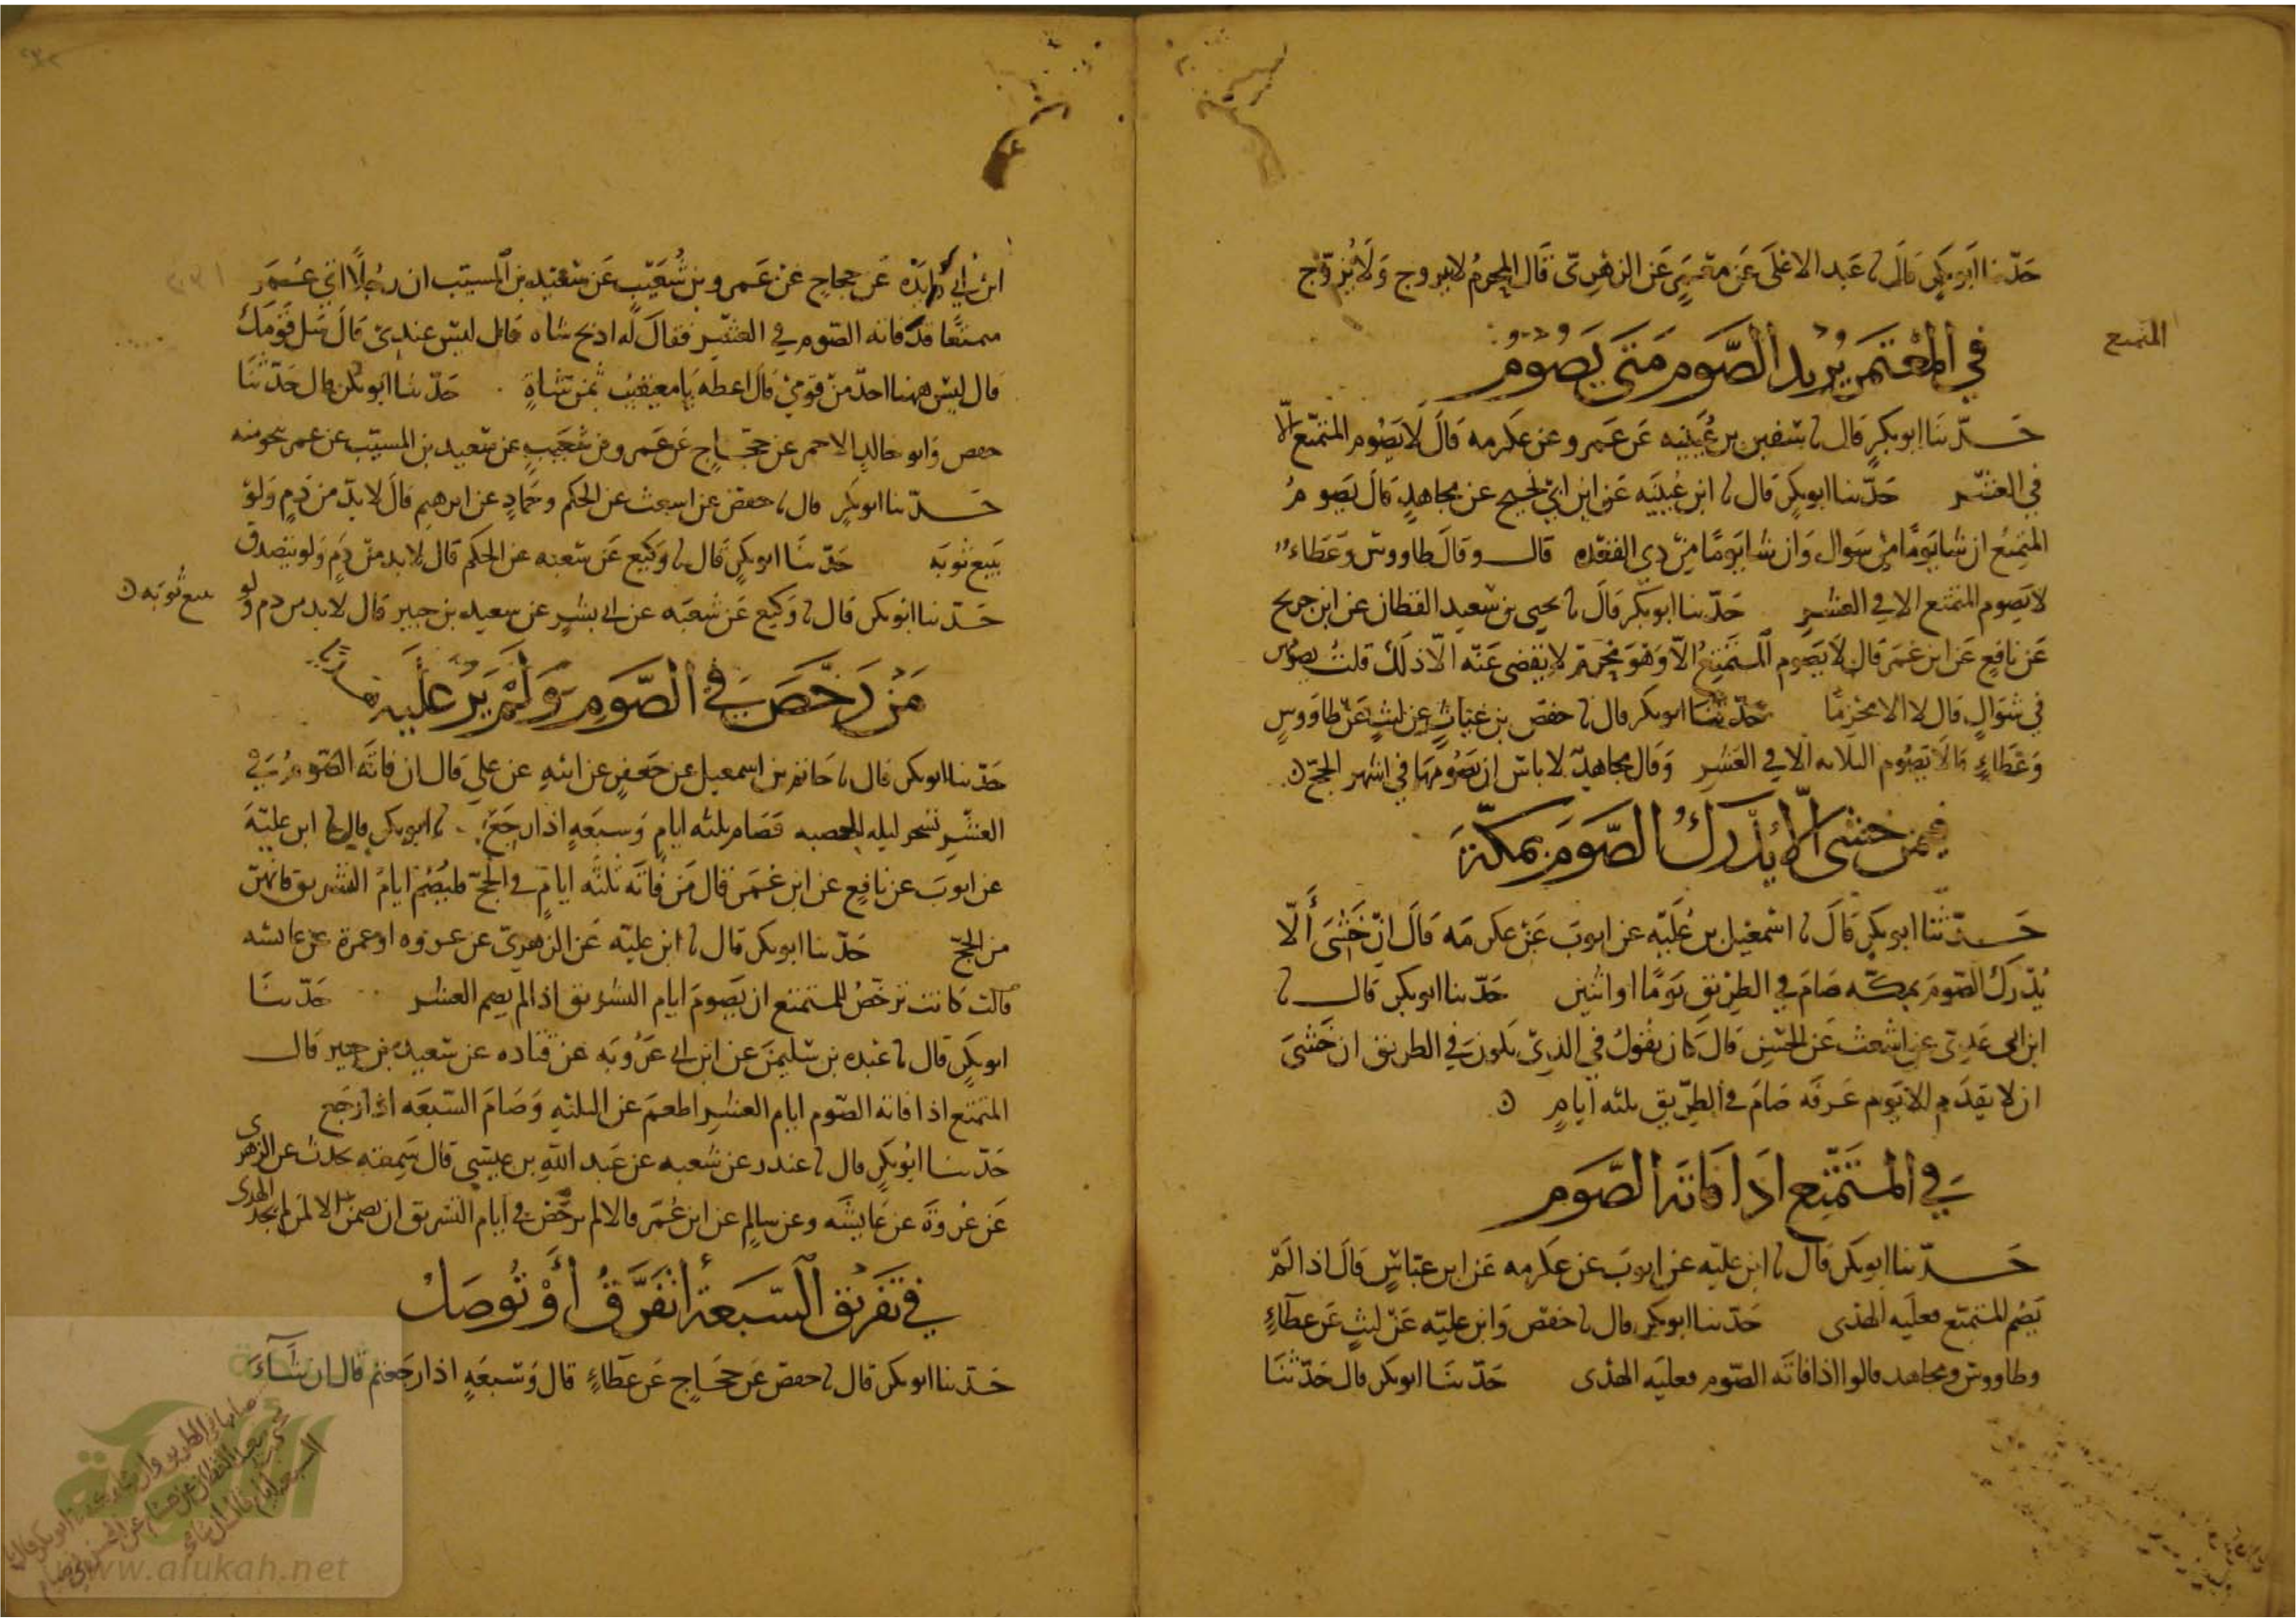 حدثنا ابو بكر قال نا عبد الاعلى عن معمر عن الزهري قال المحرم لا يتزوج ولا يزوج
المتمتع
في المعتمر يريد الصوم متى يصوم
حدثنا ابو بكر قال نا سفين بن عيينه عن عمرو عن عكرمه قال لا يصوم المتمتع الا
في العشر حدثنا ابو بكر قال نا ابن عيينه عن ابن ابي نجيح عن مجاهد قال يصوم
المتمتع ان شا يوما من شوال وان شا يوما من ذي القعده قال وقال طاووس وعطاء
لا يصوم المتمتع الا في العشر حدثنا ابو بكر قال نا يحيى بن سعيد القطان عن ابن جريج
عن نافع عن ابن عمر قال لا يصوم المتمتع الا وهو محرم لا يقضى عنه الا ذلك قلت يصوم
في شوال قال لا الا محرما حدثنا ابو بكر قال نا حفص بن غياث عن ليث عن طاووس
وعطاء قالا لا يصوم الثلاثه الا في العشر وقال مجاهد لا باس ان يصومها في اشهر الحج
فيمن خشي الا يدرك الصوم بمكة
حدثنا ابو بكر قال نا اسمعيل بن عليه عن ايوب عن عكرمه قال ان خشى ألا
يدرك الصوم بمكه صام في الطريق يوما او اثنين حدثنا ابو بكر قال نا
ابن ابى عدي عن اشعث عن الحسن قال كان يقول في الذي يكون في الطريق ان خشى
ان لا يقدم الا يوم عرفه صام في الطريق ثلثه ايام
في المتمتع اذا فاته الصوم
حدثنا ابو بكر قال نا ابن عليه عن ايوب عن عكرمه عن ابن عباس قال اذا لم
يصم المتمتع فعليه الهدى حدثنا ابو بكر قال نا حفص وابن عليه عن ليث عن عطاء
وطاووس ومجاهد قالوا اذا فاته الصوم فعليه الهدى حدثنا ابو بكر قال حدثنا
ابن ابي زايدة عن حجاج عن عمرو بن شعيب عن سعيد بن المسيب ان رجلا اتى عمر
متمتعا قد فاته الصوم في العشر فقال له اذبح شاه قال ليس عندي قال سل قومك
قال ليس ههنا احد من قومي قال اعطه يا معيقيب ثمن شاة حدثنا ابو بكر قال حدثنا
حفص وابو خالد الاحمر عن حجاج عن عمرو بن شعيب عن سعيد بن المسيب عن عمر بنحو منه
حدثنا ابو بكر قال نا حفص عن اشعث عن الحكم وحماد عن ابرهيم قال لا بد من دم ولو
يبيع ثوبه حدثنا ابو بكر قال نا وكيع عن شعبه عن الحكم قال لا بد من دم ولو يتصدق
حدثنا ابو بكر قال نا وكيع عن شعبه عن ابي بشر عن سعيد بن جبير قال لا بد من دم ولو يبيع ثوبه
من رخص في الصوم ولم ير عليه هديا
حدثنا ابو بكر قال نا حاتم بن اسمعيل عن جعفر عن ابيه عن علي قال ان فاته الصوم في
العشر تسحر ليله الحصبه فصام ثلثه ايام وسبعه اذا رجع نا ابو بكر قال نا ابن علية
عن ايوب عن نافع عن ابن عمر قال من فاته ثلثه ايام في الحج فليصم ايام التشريق فانهن
من الحج حدثنا ابو بكر قال نا ابن عليه عن الزهري عن عروه او عمرة عن عايشه
قالت كانت ترخص للمتمتع ان يصوم ايام التشريق اذا لم يصم العشر حدثنا
ابو بكر قال نا عبده بن سليمن عن ابن ابي عروبه عن قتاده عن سعيد بن جبير قال
المتمتع اذا فاته الصوم ايام العشر اطعم عن الثلثه وصام السبعه اذا رجع
حدثنا ابو بكر قال نا غندر عن شعبه عن عبد الله بن عيسى قال سمعته يحدث عن الزهرى
عن عروة عن عايشه وعن سالم عن ابن عمر قالا لم يرخص في ايام التشريق ان يصمن الا لمن لم يجد الهدى
في تفريق السبعة أتفرق أو توصل
حدثنا ابو بكر قال نا حفص عن حجاج عن عطاء قال وسبعه اذا رجعتم قال ان شاء
صامها في الطريق وان شاء ابو بكر قال نا
بن سعيد القطان عن هشام عن الحسن
السبعه ايام قال ان شاء
الألوكة
www.alukah.net